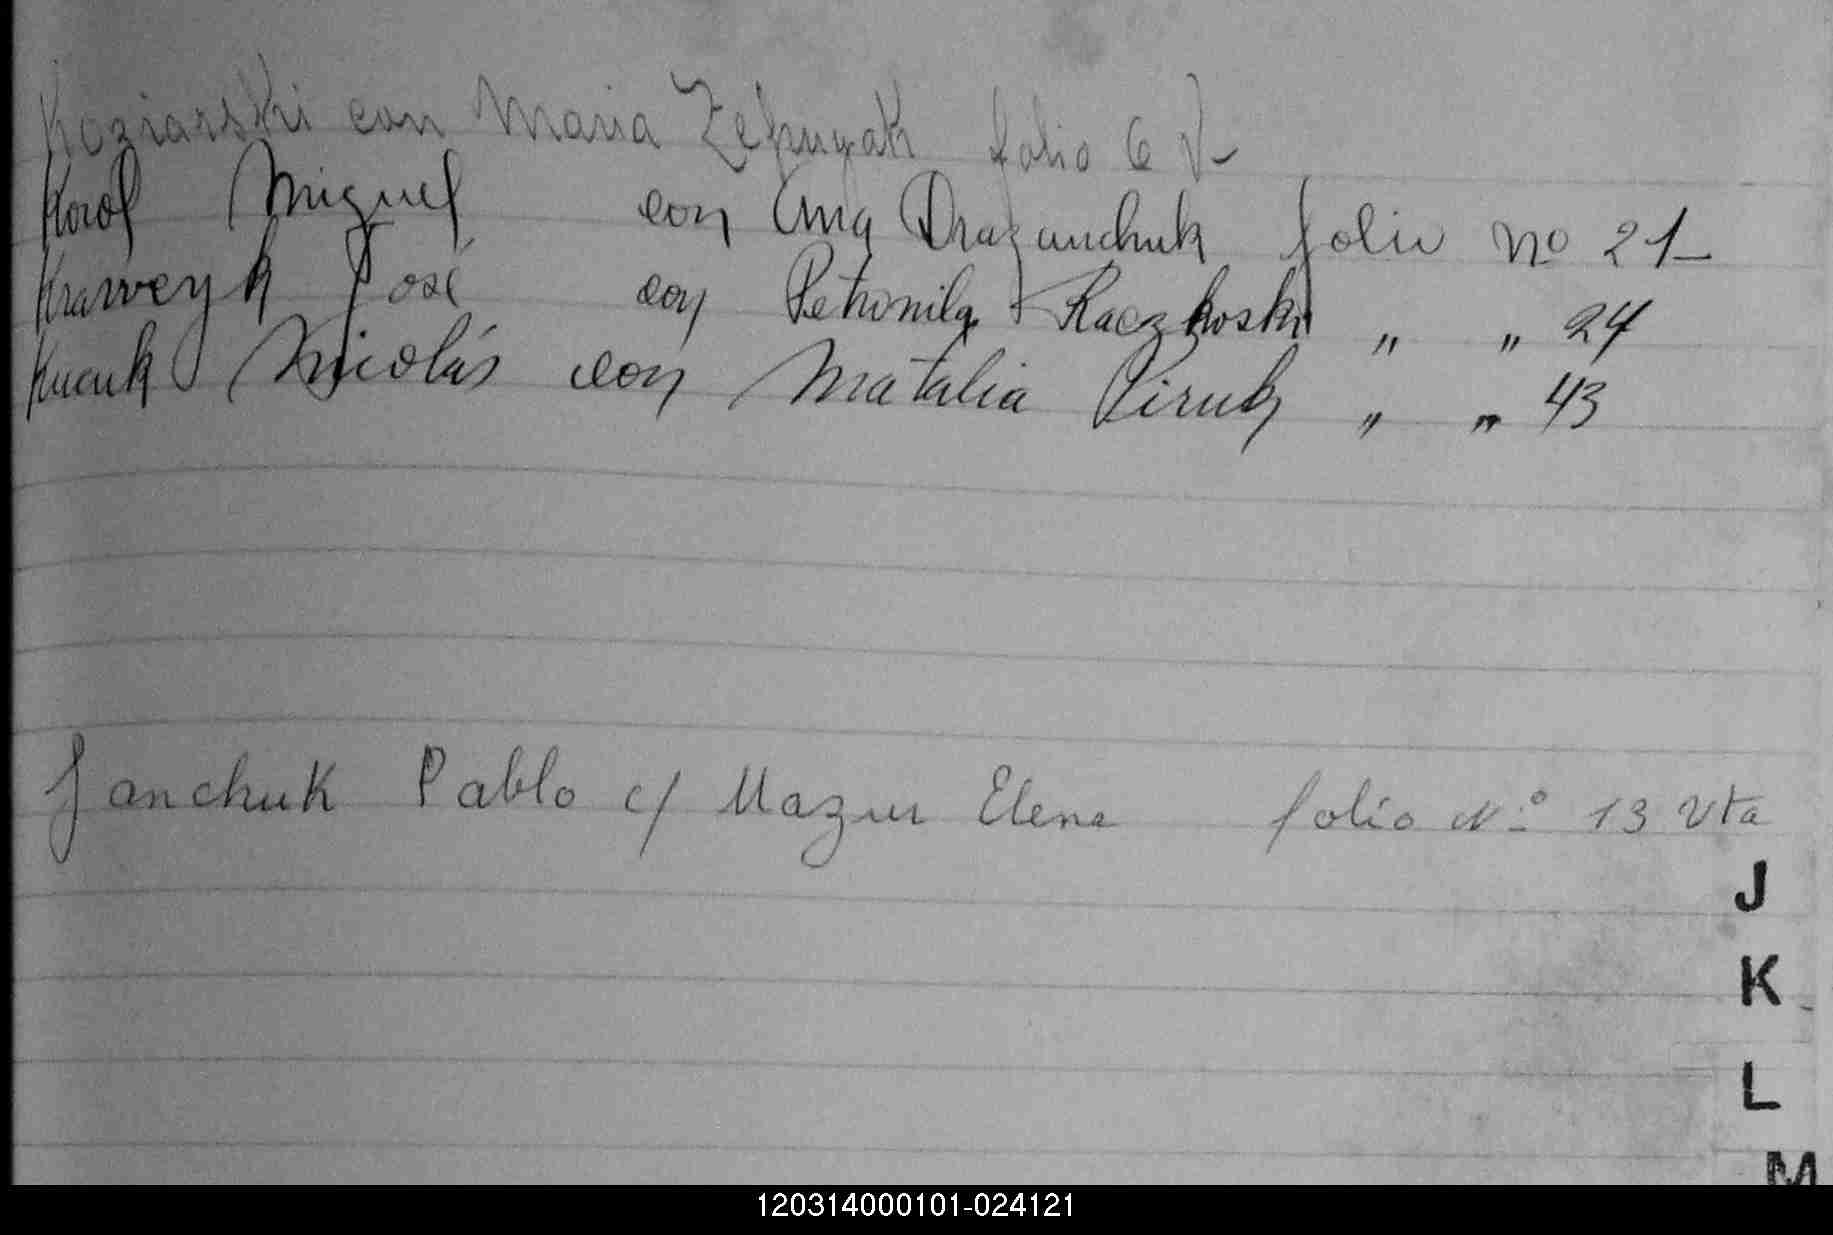 Koziarski con Maria Zepnyak folio 6 V-
Korol Miguel con Ana Drazanchuk folio No 21-
Krawczyk José con Petronila Raczkoski " " 24
Kucuk Nicolás con Natalia Piruk " " 43
Janchuk Pablo c/ Mazur Elena folio Nº 13 Vta
J
K
L
M
120314000101-024121